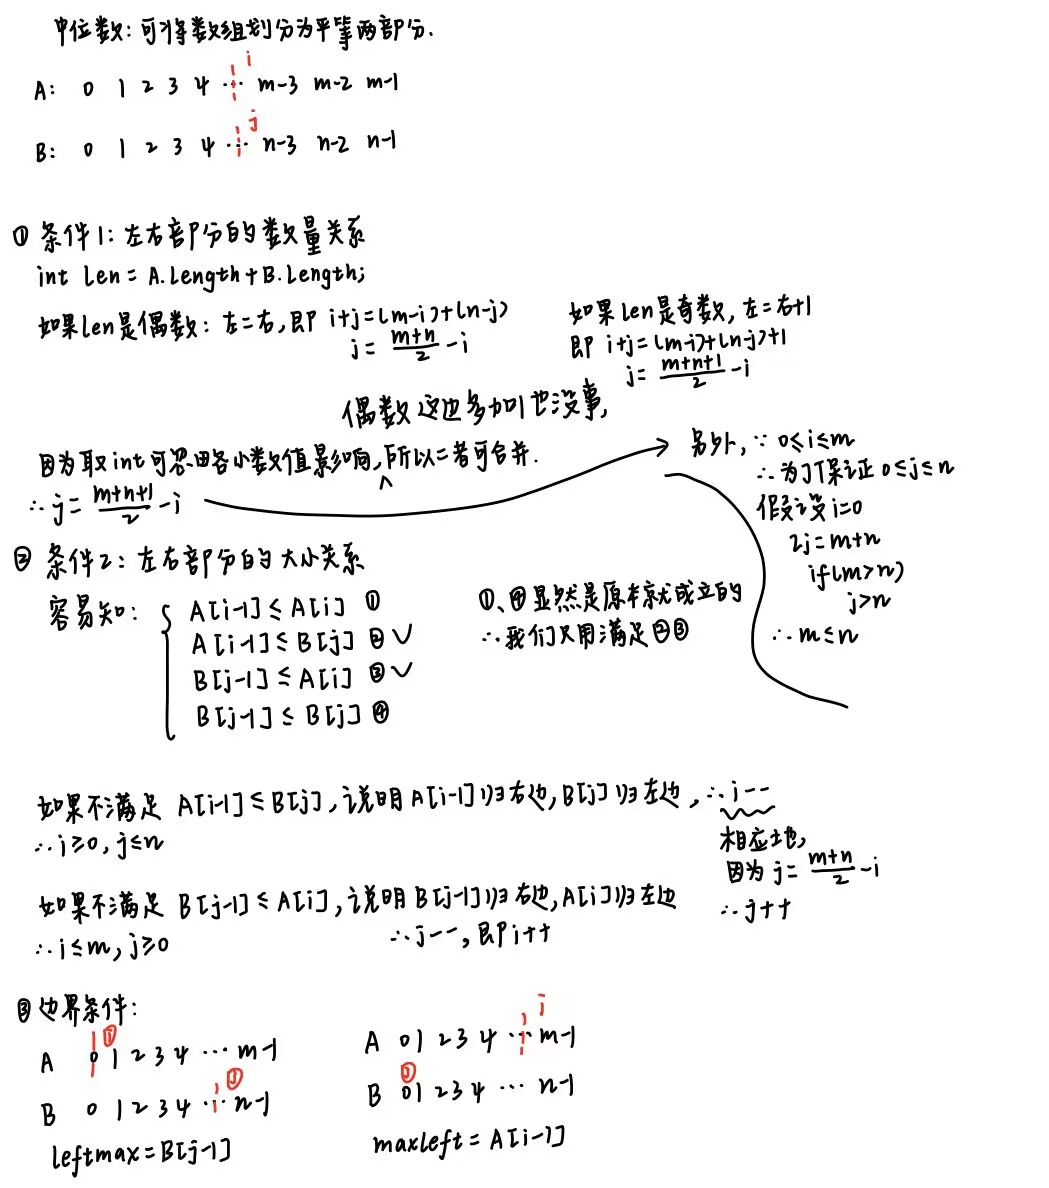 中位数：可将数组划分为平等两部分.
i
A: 0 1 2 3 4 ... m-3 m-2 m-1
j
B: 0 1 2 3 4 ... n-3 n-2 n-1
① 条件1：左右部分的数量关系
int len = A.length + B.length;
如果len是偶数：左=右，即 i+j=(m-i)+(n-j)
j = \frac{m+n}{2} - i
如果len是奇数，左=右+1
即 i+j=(m-i)+(n-j)+1
j = \frac{m+n+1}{2} - i
偶数这边多加1也没事，
因为取int可忽略小数值影响，所以二者可合并.
∴ j = \frac{m+n+1}{2} - i
另外，∵ 0≤i≤m
∴ 为了保证 0≤j≤n
假设i=0
2j=m+n
if(m>n)
j>n
∴ m≤n
② 条件2：左右部分的大小关系
容易知：{ A[i-1] ≤ A[i] ①
A[i-1] ≤ B[j] ② ✓
B[j-1] ≤ A[i] ③ ✓
B[j-1] ≤ B[j] ④
①、④显然是原本就成立的
∴ 我们只用满足②③
如果不满足 A[i-1] ≤ B[j]，说明A[i-1]归右边，B[j]归左边，∴ i--
∴ i≥0, j≤n
相应地，
因为 j = \frac{m+n}{2} - i
∴ j++
如果不满足 B[j-1] ≤ A[i]，说明B[j-1]归右边，A[i]归左边
∴ i≤m, j≥0
∴ j--，即i++
③ 边界条件：
i
A 0 1 2 3 4 ... m-1
j
B 0 1 2 3 4 ... n-1
leftmax = B[j-1]
i
A 0 1 2 3 4 ... m-1
j
B 0 1 2 3 4 ... n-1
maxleft = A[i-1]